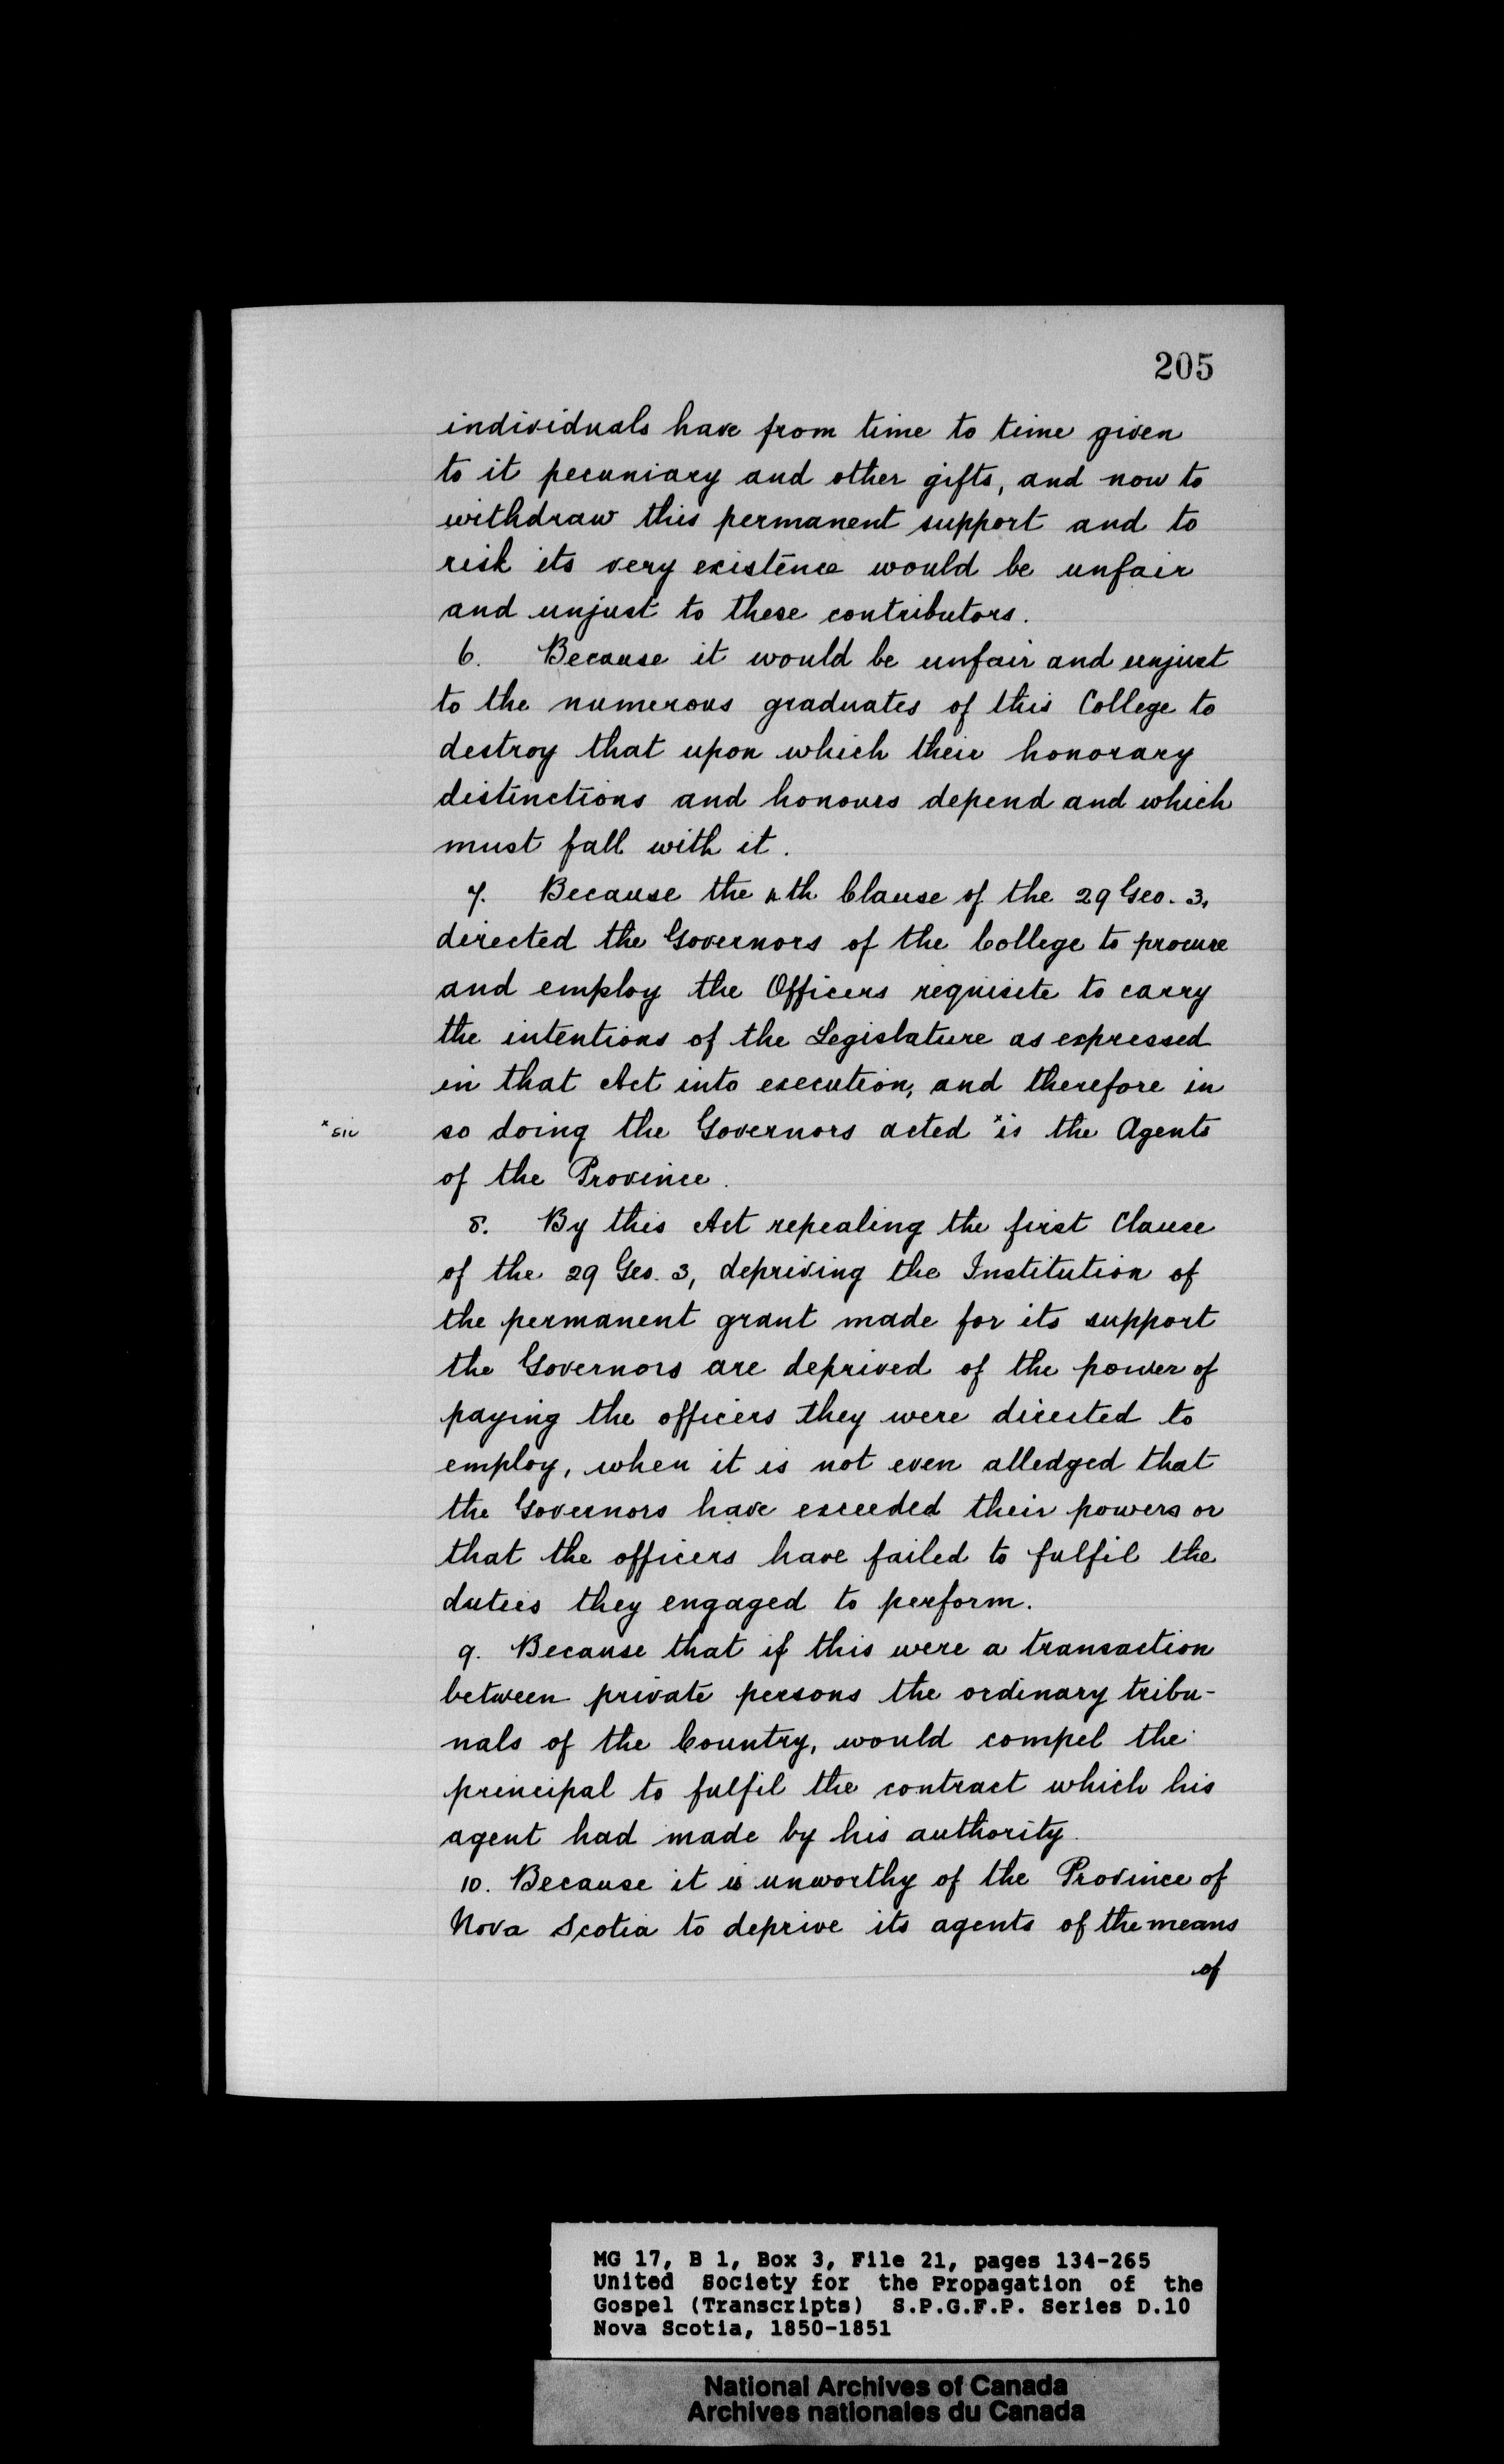 205
individuals have from time to time given
to it pecuniary and other gifts, and now to
withdraw this permanent support and to
risk its very existence would be unfair
and unjust to these contributors.
6. Because it would be unfair and unjust
to the numerous graduates of this College to
destroy that upon which their honorary
distinctions and honours depend and which
must fall with it.
7. Because the 4th Clause of the 29 Geo. 3,
directed the Governors of the College to procure
and employ the Officers requisite to carry
the intentions of the Legislature as expressed
in that Act into execution, and therefore in
*sic so doing the Governors acted *is the Agents
of the Province.
8. By this Act repealing the first Clause
of the 29 Geo. 3, depriving the Institution of
the permanent grant made for its support
the Governors are deprived of the power of
paying the officers they were directed to
employ, when it is not even alledged that
the Governors have exceeded their powers or
that the officers have failed to fulfil the
duties they engaged to perform.
9. Because that if this were a transaction
between private persons the ordinary tribu-
nals of the Country, would compel the
principal to fulfil the contract which his
agent had made by his authority.
10. Because it is unworthy of the Province of
Nova Scotia to deprive its agents of the means
of
MG 17, B 1, Box 3, File 21, pages 134-265
United Society for the Propagation of the
Gospel (Transcripts) S.P.G.F.P. Series D.10
Nova Scotia, 1850-1851
National Archives of Canada
Archives nationales du Canada